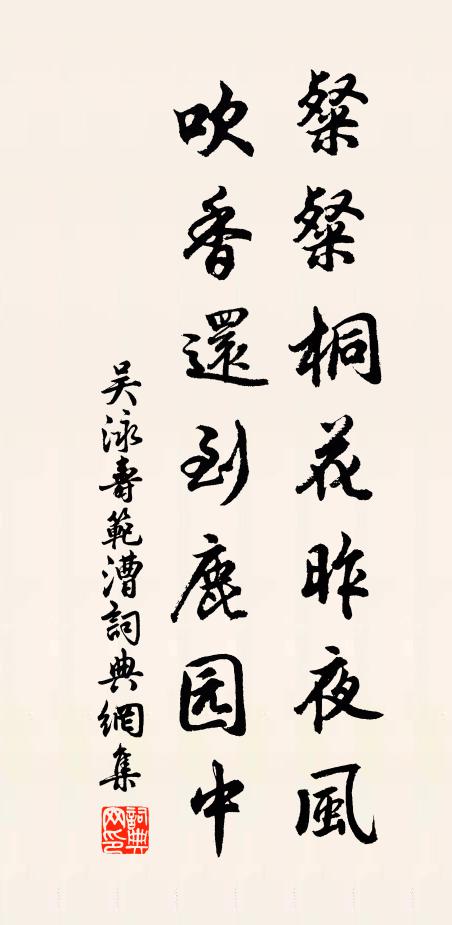 粲粲桐花昨夜風
吹香還到鹿园中
吴泳壽範漕詞典網集
詞典网印